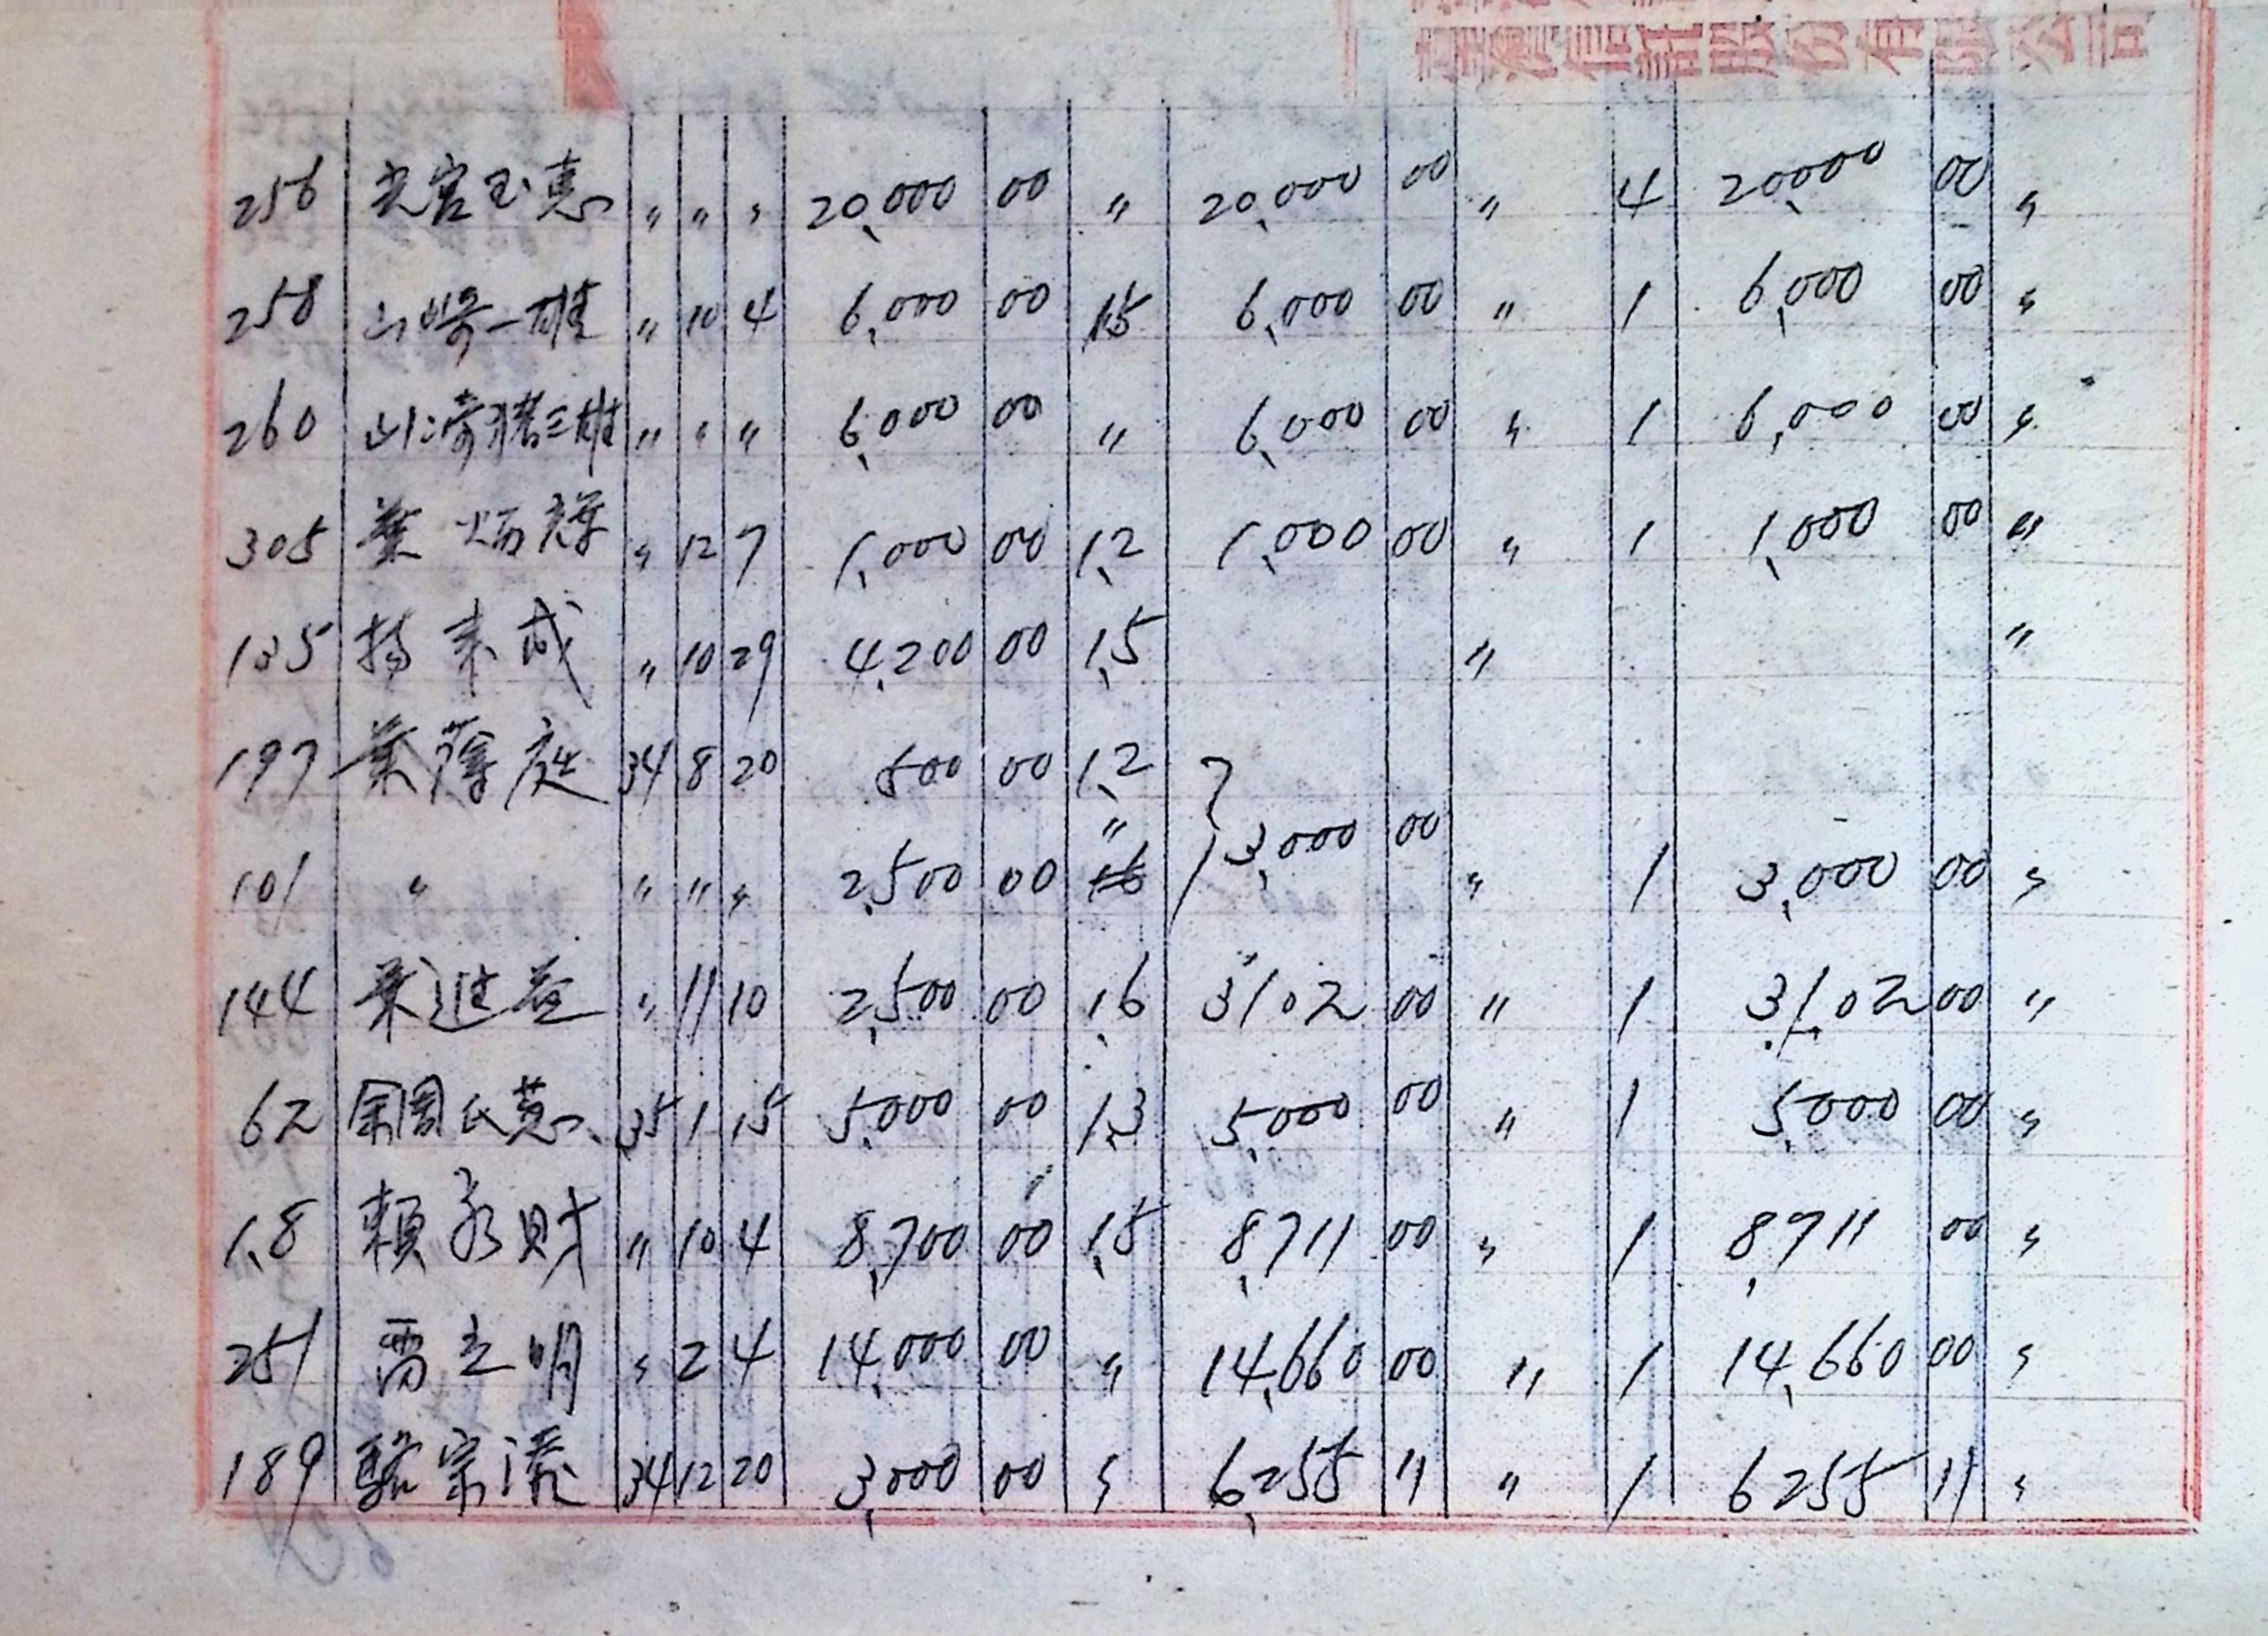 臺灣信託股份有限公司
256 宮玉惠 〃 〃 〃 20,000 00 〃 20,000 00 〃 4 20,000 00 〃
258 山崎一雄 〃 10 4 6,000 00 1.5 6,000 00 〃 1 6,000 00 〃
260 山崎猪三雄 〃 〃 〃 6,000 00 〃 6,000 00 〃 1 6,000 00 〃
305 葉炳輝 〃 12 7 1,000 00 1.2 1,000 00 〃 1 1,000 00 〃
135 楊来成 〃 10 29 4,200 00 1.5 〃 〃
197 葉 庭 34 8 20 500 00 1.2
101 〃 〃 〃 〃 2,500 00 〃 3,000 00 〃 1 3,000 00 〃
144 葉進益 〃 11 10 2,500 00 1.6 3102 00 〃 1 3,102 00 〃
62 周氏 35 1 15 5,000 00 1.3 5,000 00 〃 1 5,000 00 〃
1.8 賴永財 〃 10 4 8,700 00 1.5 8,711 00 〃 1 8,711 00 〃
251 雷立明 〃 2 4 14,000 00 〃 14,660 00 〃 1 14,660 00 〃
189 駱宗 34 12 20 3,000 00 〃 6,255 11 〃 1 6255 11 〃